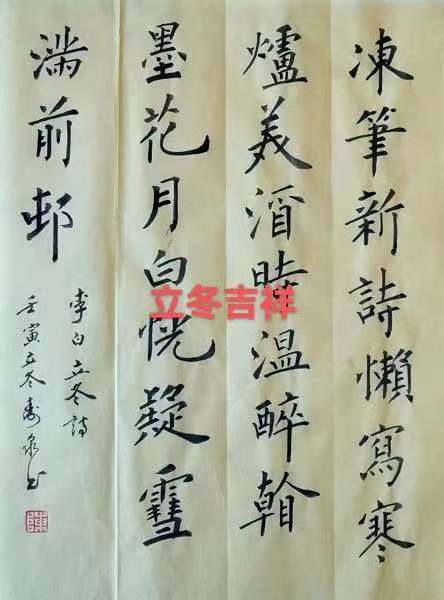 凍筆新詩懶寫寒
爐美酒時溫醉看
墨花月白恍疑雪
滿前邨
李白立冬詩
壬寅立冬壽泉书
立冬吉祥